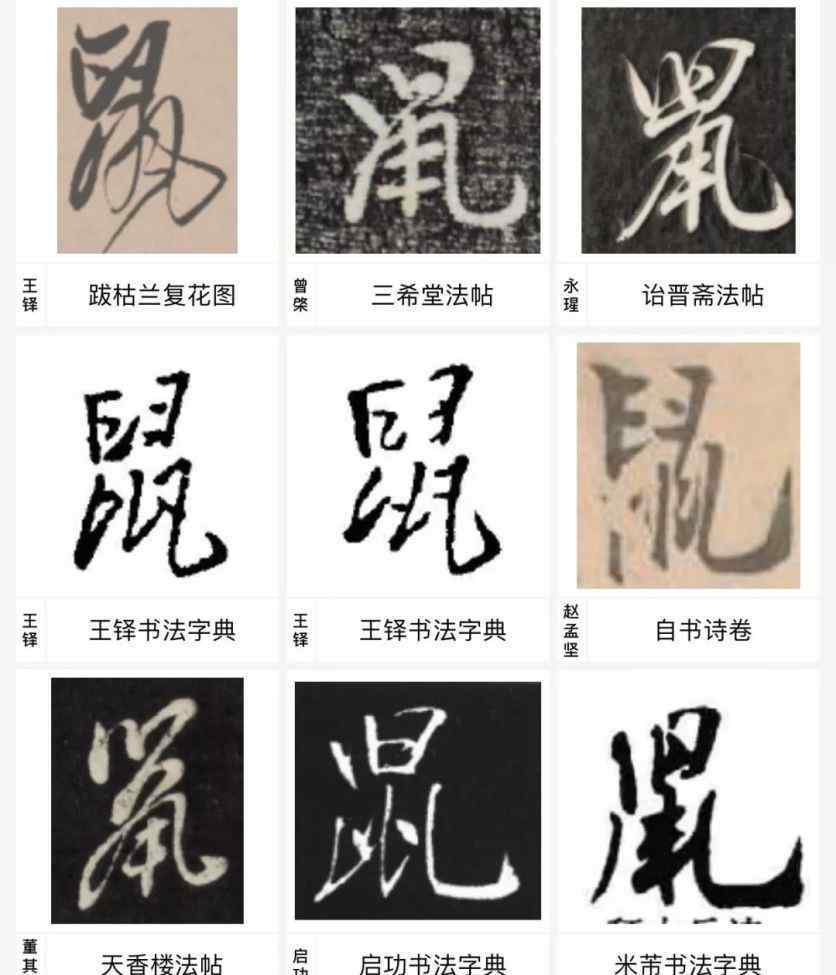 鼠 鼠 鼠
王铎 跋枯兰复花图
曾棨 三希堂法帖
永瑆 诒晋斋法帖
鼠 鼠 鼠
王铎 王铎书法字典
王铎 王铎书法字典
赵孟坚 自书诗卷
鼠 鼠 鼠
董其 天香楼法帖
启功 启功书法字典
米芾书法字典